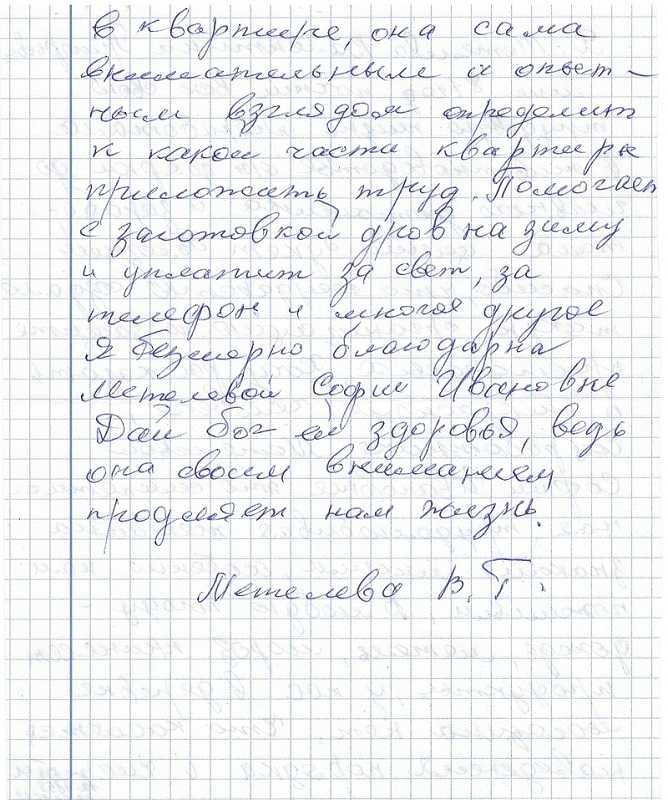 в квартире, она сама
внимательным и опыт-
ным взглядом определит
к какой части квартиры
приложить труд. Помогает
с заготовкой дров на зиму
и уплатит за свет, за
телефон и многое другое
Я безмерно благодарна
Метелевой Софии Ивановне
Дай бог ей здоровья, ведь
она своим вниманием
продляет нам жизнь.
Метелева В. Г.